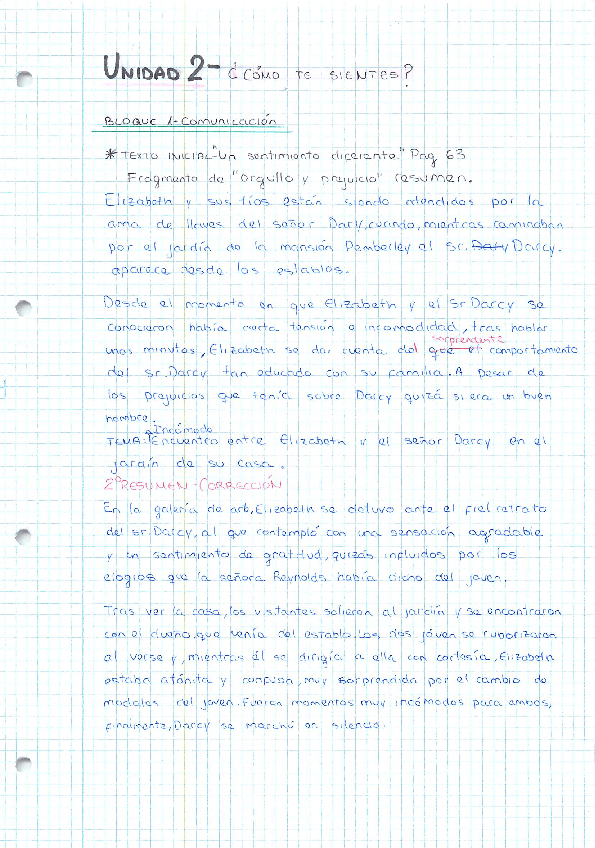 UNIDAD 2- ¿CÓMO TE SIENTES?
BLOQUE 1-Comunicación
*TEXTO INICIAL-"Un sentimiento diferente" Pág 63
Fragmento de "orgullo y prejuicio" resumen.
Elizabeth y sus tíos están siendo atendidos por la
ama de llaves del señor Darly, cuando, mientras caminaban
por el jardín de la mansión Pemberley el Sr. Darcy.
aparace desde los establos.
Desde el momento en que Elizabeth y el Sr Darcy se
conocieron había cierta tensión o incomodidad, tras hablar
sorprendente
unos minutos, Elizabeth se dar cuenta del que el comportamiento
del Sr. Darcy tan educado con su familia. A pesar de
los prejuicios que tenía sobre Darcy quizá si era un buen
hombre.
Incómodo
TEMA: Encuentro entre Elizabeth y el señor Darcy en el
jardín de su casa.
2º RESUMEN-CORRECCIÓN
En la galería de arte, Elizabeth se detuvo ante el fiel retrato
del sr. Darcy, al que contempló con una sensación agradable
y un sentimiento de gratitud, quizás influidos por los
elogios que la señora Reynolds había dicho del joven.
Tras ver la casa, los visitantes salieron al jardín y se encontraron
con el dueño, que venía del establo. Los dos jóven se ruborizaron
al verse y, mientras él se dirigía a ella con cortesía, Elizabeth
estaba atónita y confusa, muy sorprendida por el cambio de
modales del joven. Fueron momentos muy incómodos para ambos,
finalmente, Darcy se marchó en silencio.